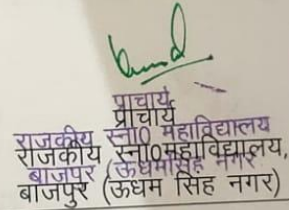 प्राचार्य
प्राचार्य
राजकीय स्ना0 महाविद्यालय
राजकीय स्ना0महाविद्यालय,
बाजपुर (ऊधमसिंह नगर
बाजपुर (ऊधम सिंह नगर)